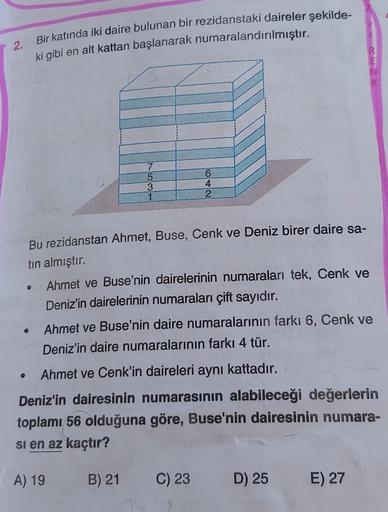 2. Bir katında iki daire bulunan bir rezidanstaki daireler şekilde-
ki gibi en alt kattan başlanarak numaralandırılmıştır.
7
5 6
3 4
1 2
Bu rezidanstan Ahmet, Buse, Cenk ve Deniz birer daire sa-
tın almıştır.
• Ahmet ve Buse'nin dairelerinin numaraları tek, Cenk ve
Deniz'in dairelerinin numaraları çift sayıdır.
• Ahmet ve Buse'nin daire numaralarının farkı 6, Cenk ve
Deniz'in daire numaralarının farkı 4 tür.
• Ahmet ve Cenk'in daireleri aynı kattadır.
Deniz'in dairesinin numarasının alabileceği değerlerin
toplamı 56 olduğuna göre, Buse'nin dairesinin numara-
sı en az kaçtır?
A) 19 B) 21 C) 23 D) 25 E) 27
R
E
N
K